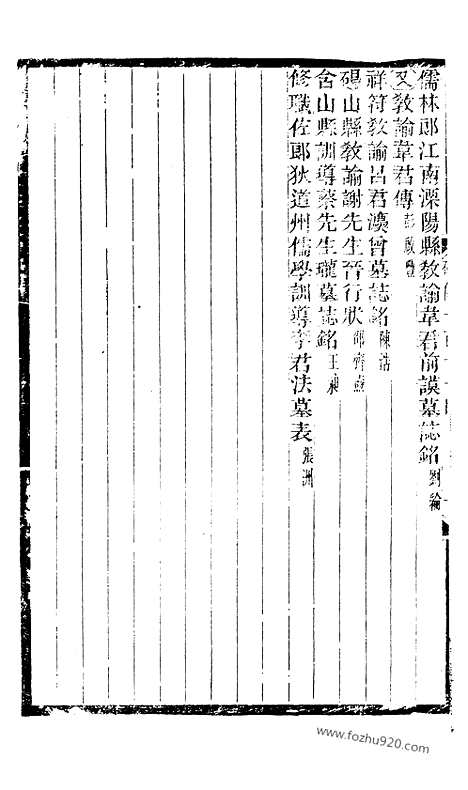 儒林郎江南溧陽縣敎諭韋君前謨墓誌銘 劉綸
又敎諭韋君傳 彭啟豐
祥符敎諭呂君瀛曾墓誌銘 陳浩
碭山縣敎諭謝先生晉行狀 邵齊燾
含山縣訓導蔡先生瓏墓誌銘 王昶
修職佐郎狄道州儒學訓導李君法墓表 張洲
www.fozhu920.com